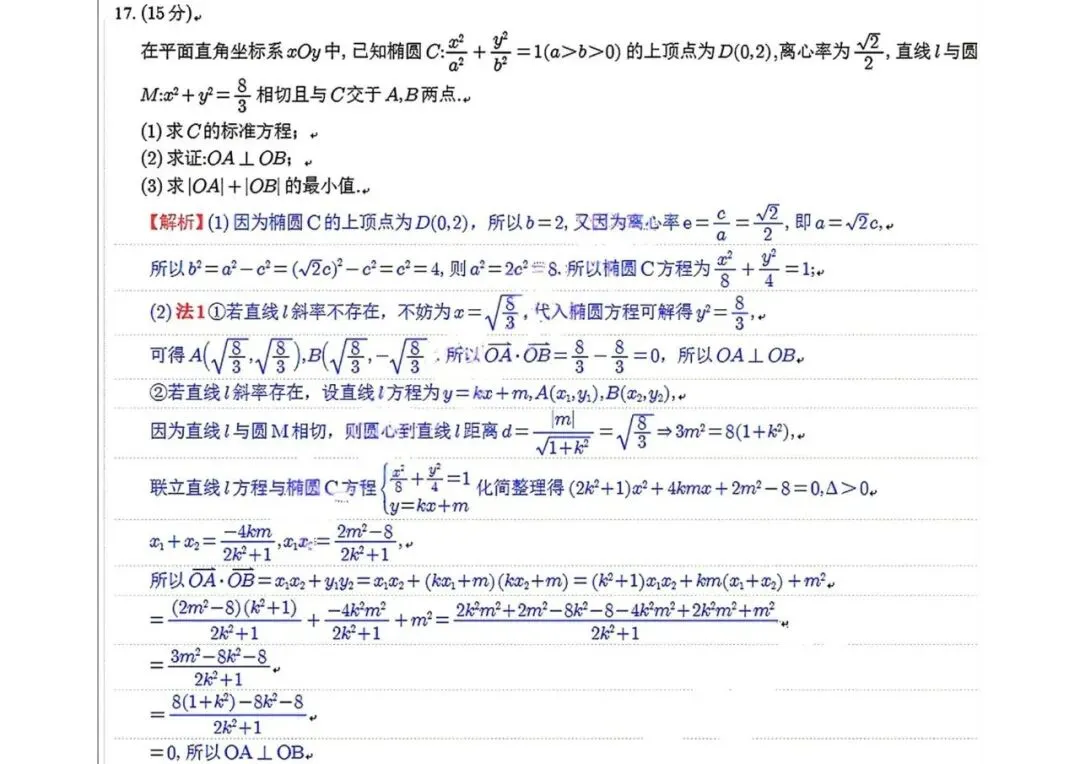 17. (15分)
在平面直角坐标系xOy中, 已知椭圆C: x²/a² + y²/b² = 1(a>b>0) 的上顶点为D(0,2), 离心率为 √2/2, 直线l与圆
M: x²+y² = 8/3 相切且与C交于A,B两点.
(1) 求C的标准方程;
(2) 求证: OA⊥OB;
(3) 求|OA|+|OB|的最小值.
【解析】(1) 因为椭圆C的上顶点为D(0,2), 所以b=2, 又因为离心率e = c/a = √2/2, 即a=√2c,
所以b²=a²−c²=(√2c)²−c²=c²=4, 则a²=2c²=8, 所以椭圆C方程为 x²/8 + y²/4 = 1;
(2) 法1①若直线l斜率不存在, 不妨为x=√(8/3), 代入椭圆方程可解得y²=8/3,
可得A(√(8/3),√(8/3)),B(√(8/3),−√(8/3) , 所以OA→·OB→=8/3−8/3=0, 所以OA⊥OB,
②若直线l斜率存在, 设直线l方程为y=kx+m,A(x₁,y₁),B(x₂,y₂),
因为直线l与圆M相切, 则圆心到直线l距离d=|m|/√(1+k²)=√(8/3)⇒3m²=8(1+k²),
联立直线l方程与椭圆C方程{x²/8+y²/4=1 y=kx+m 化简整理得(2k²+1)x²+4kmx+2m²−8=0,Δ>0,
x₁+x₂=−4km/(2k²+1),x₁x₂=(2m²−8)/(2k²+1),
所以OA→·OB→=x₁x₂+y₁y₂=x₁x₂+(kx₁+m)(kx₂+m)=(k²+1)x₁x₂+km(x₁+x₂)+m²
=(2m²−8)(k²+1)/(2k²+1)+−4k²m²/(2k²+1)+m²=(2k²m²+2m²−8k²−8−4k²m²+2k²m²+m²)/(2k²+1)
=(3m²−8k²−8)/(2k²+1)
=(8(1+k²)−8k²−8)/(2k²+1)
=0, 所以OA⊥OB.